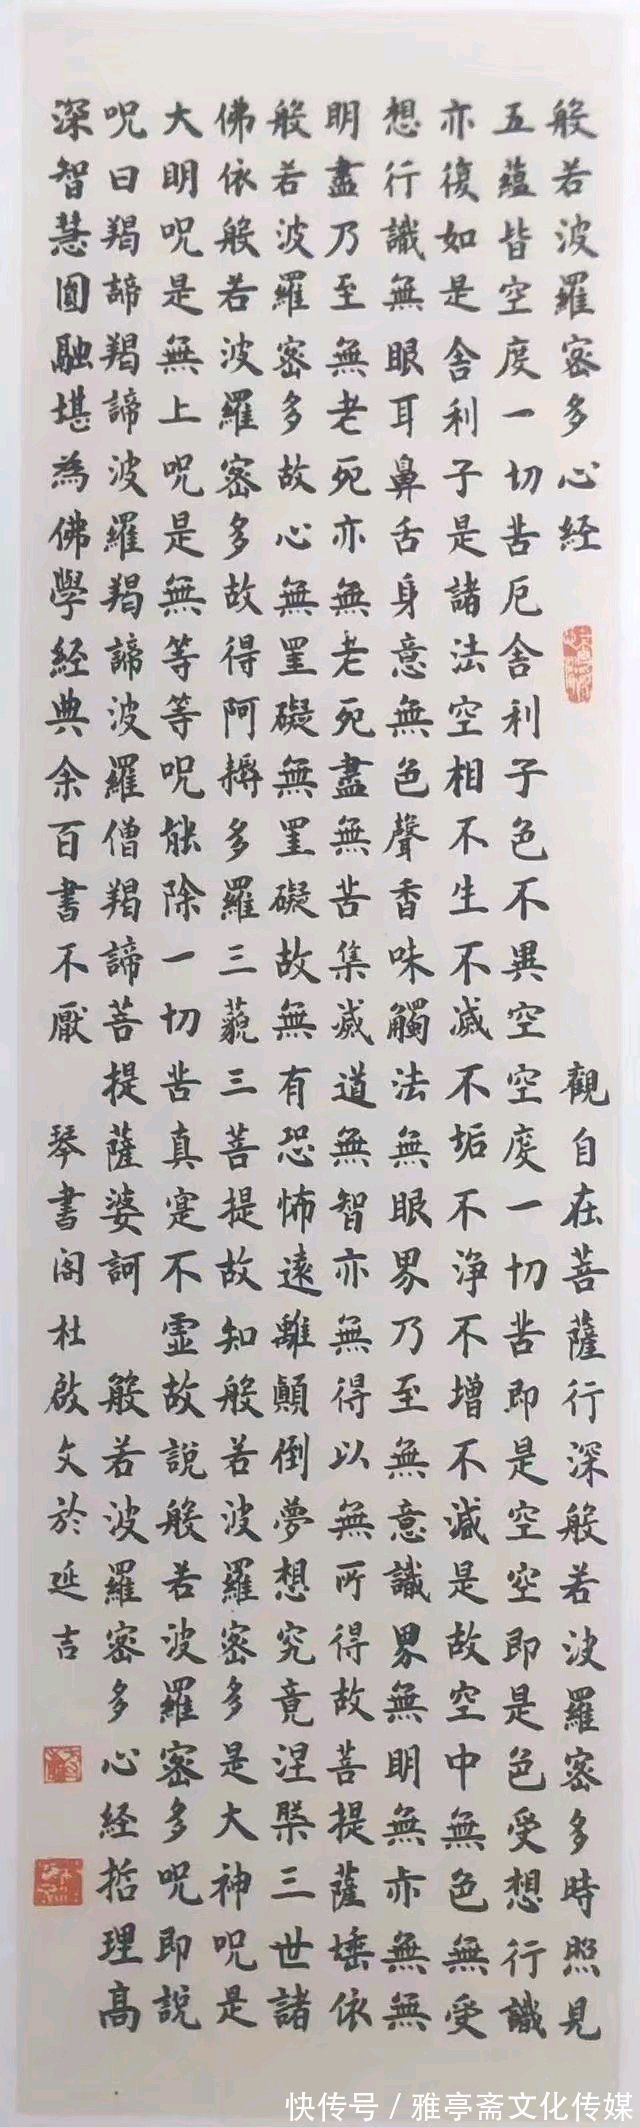 般若波羅密多心经 觀自在菩薩行深般若波羅密多時照見
五蘊皆空度一切苦厄舍利子色不異空空度一切苦即是空空即是色受想行識
亦復如是舍利子是諸法空相不生不滅不垢不淨不增不減是故空中無色無受
想行識無眼耳鼻舌身意無色聲香味觸法無眼界乃至無意識界無明無亦無無
明盡乃至無老死亦無老死盡無苦集滅道無智亦無得以無所得故菩提薩埵依
般若波羅密多故心無罣礙無罣礙故無有恐怖遠離顛倒夢想究竟涅槃三世諸
佛依般若波羅密多故得阿耨多羅三藐三菩提故知般若波羅密多是大神咒是
大明咒是無上咒是無等等咒能除一切苦真寔不虛故說般若波羅密多咒即說
咒曰羯諦羯諦波羅羯諦波羅僧羯諦菩提薩婆訶 般若波羅密多心经哲理高
深智慧圓融堪為佛學経典余百書不厭 琴書阁杜啟文於延吉
快传号/雅亭斋文化传媒